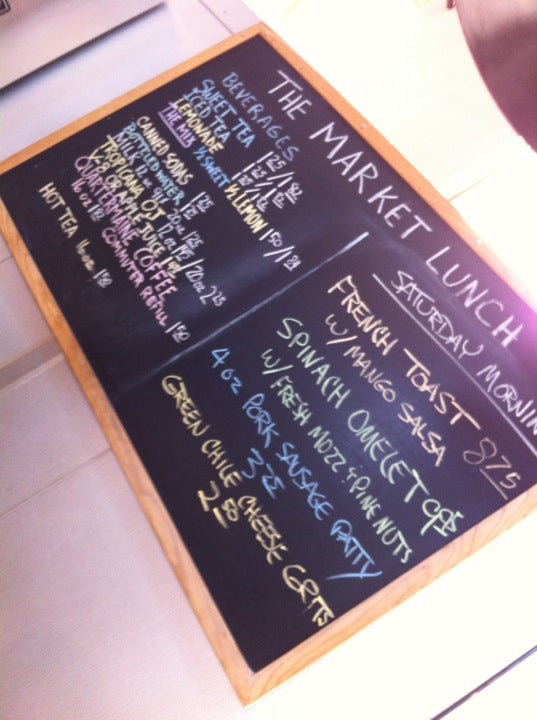 THE MARKET LUNCH
BEVERAGES
SWEET TEA
ICED TEA
LEMONADE
THE MIX ½ SWEET ½ LEMON 1.50 /
CANNED SODAS 1.25
BOTTLED WATER
MILK 12 oz
TROPICANA OJ
V-8 OR APPLE JUICE
QUARTERMAINE COFFEE
16 oz COMMUTER REFILL 1.50
HOT TEA 16 oz. 1.50
SATURDAY MORNIN
FRENCH TOAST 8.75
W/ MANGO SALSA
SPINACH OMELET
W/ FRESH MOZZ & PINE NUTS
4 OZ PORK SAUSAGE PATTY
GREEN CHILE CHEESE GRITS
2.50